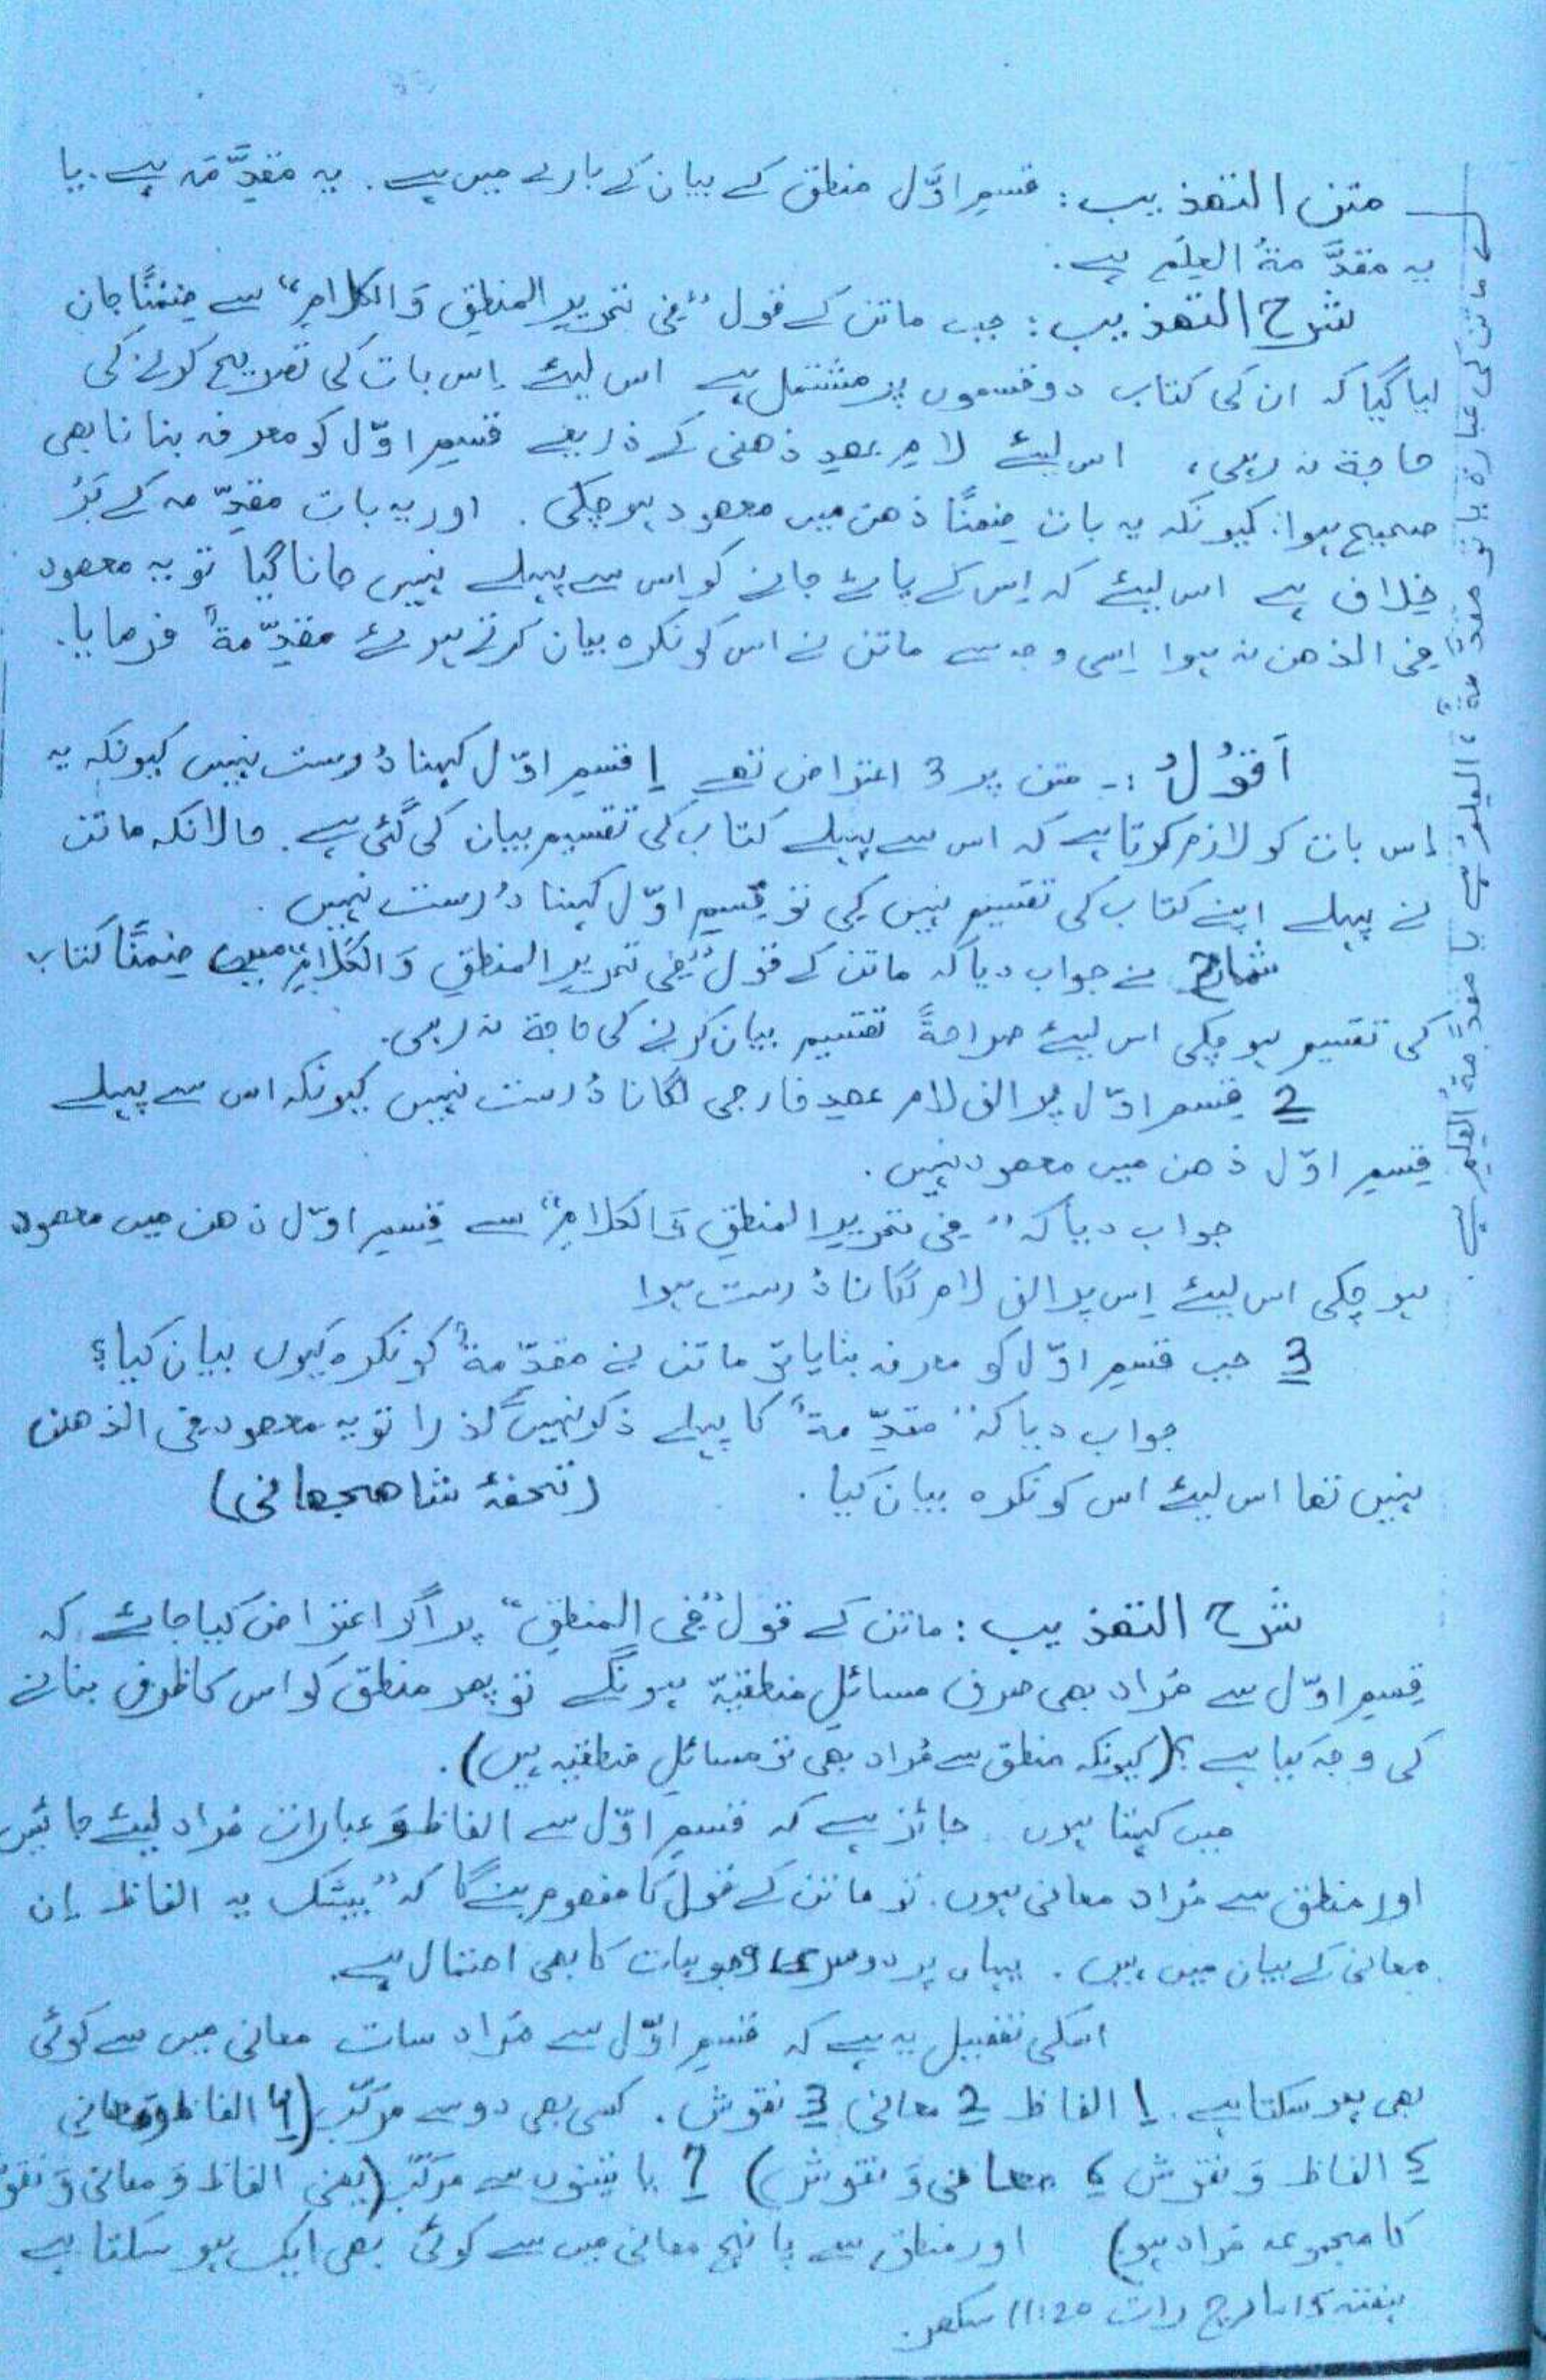 متن التھذیب: قسمِ اوَّل منطق کے بیان کے بارے میں ہے. یہ مقدِّمَہ ہے. یا
یہ مقدَّمۃُ العِلم ہے.
شرح التھذیب: جب ماتن کے قول "فی تحریرِ المنطقِ وَالکلامِ" سے ضِمْنًا جان
لیا گیا کہ ان کی کتاب دو قسموں پر مشتمل ہے اس لیئے اِس بات کی تصریح کرنے کی
حاجۃ نہ رہی، اس لیئے لامِ عھدِ ذھنی کے ذریعے قسمِ اوّل کو معرفہ بنانا بھی
صحیح ہوا: کیونکہ یہ بات ضِمنًا ذھن میں معھود ہو چکی. اور یہ بات مقدِّمہ کے بَرْ
خِلاف ہے اس لیئے کہ اِس کے پائے جانے کو اس سے پہلے نہیں جانا گیا تو یہ معھود
فِی الذھن نہ ہوا اِسی وجہ سے ماتن نے اس کو نکرہ بیان کرتے ہوئے مقدِّمۃٌ فرمایا.
اَقُوْلُ :۔ متن پر 3 اعتراض تھے 1 قسمِ اوّل کہنا دُرست نہیں کیونکہ یہ
اِس بات کو لازم کرتا ہے کہ اس سے پہلے کتاب کی تقسیم بیان کی گئی ہے. حالانکہ ماتن
نے پہلے اپنے کتاب کی تقسیم نہیں کی تو قِسمِ اوّل کہنا دُرست نہیں.
شارح نے جواب دیا کہ ماتن کے قول "فِی تحریرِ المنطقِ وَ الکلامِ" میں ضِمنًا کتاب
کی تقسیم ہو چکی اس لیئے صراحۃً تقسیم بیان کرنے کی حاجۃ نہ رہی.
2 قِسم اوّل پر الف لام عھدِ خارجی لگانا دُرست نہیں کیونکہ اس سے پہلے
قِسمِ اوّل ذھن میں معھود نہیں.
جواب دیا کہ "فِی تحریرِ المنطقِ وَ الکلامِ" سے قِسمِ اوّل ذھن میں معھود
ہو چکی اس لیئے اِس پر الف لام لگانا دُرست ہوا
3 جب قسمِ اوّل کو معرفہ بنایا تو ماتن نے مقدِّمۃٌ کو نکرہ کیوں بیان کیا؟
جواب دیا کہ "مقدِّمۃٌ" کا پہلے ذکر نہیں گذرا تو یہ معھود فی الذھن
نہیں تھا اس لیئے اس کو نکرہ بیان کیا. (تحفۂ شاھجھانی)
شرح التھذیب: ماتن کے قول "فِی المنطقِ" پر اگر اعتراض کیا جائے کہ
قِسمِ اوّل سے مُراد بھی صرف مسائلِ منطقیّہ ہونگے تو پھر منطق کو اس کا ظرف بنانے
کی وجہ کیا ہے؟ (کیونکہ منطق سے مُراد بھی تو مسائلِ منطقیّہ ہیں).
میں کہتا ہوں جائز ہے کہ قسمِ اوّل سے الفاظ وَ عبارات مُراد لیئے جائیں
اور منطق سے مُراد معانی ہوں. تو ماتن کے قول کا مفھوم بنے گا کہ "بیشک یہ الفاظ اِن
معانی کے بیان میں ہیں. یہاں پر دوسری وجوہات کا بھی احتمال ہے.
اسکی تفصیل یہ ہے کہ قسمِ اوّل سے مُراد سات معانی میں سے کوئی
بھی ہو سکتا ہے. 1 الفاظ 2 معانی 3 نقوش. کسی بھی دو سے مرکّب (4 الفاظ و معانی
5 الفاظ وَ نقوش 6 معانی وَ نقوش) 7 یا تینوں سے مرکّب (یعنی الفاظ وَ معانی وَ نقوش
کا مجموعہ مُراد ہو) اور منطق سے پانچ معانی میں سے کوئی بھی ایک ہو سکتا ہے
ہفتہ 15 مارچ رات 11:20 سکھر.
ماتن کی عبارۃ یا تو مقدِّمۃٌ، العِلمُ ہے یا مقدِّمۃُ العِلمِ ہے.